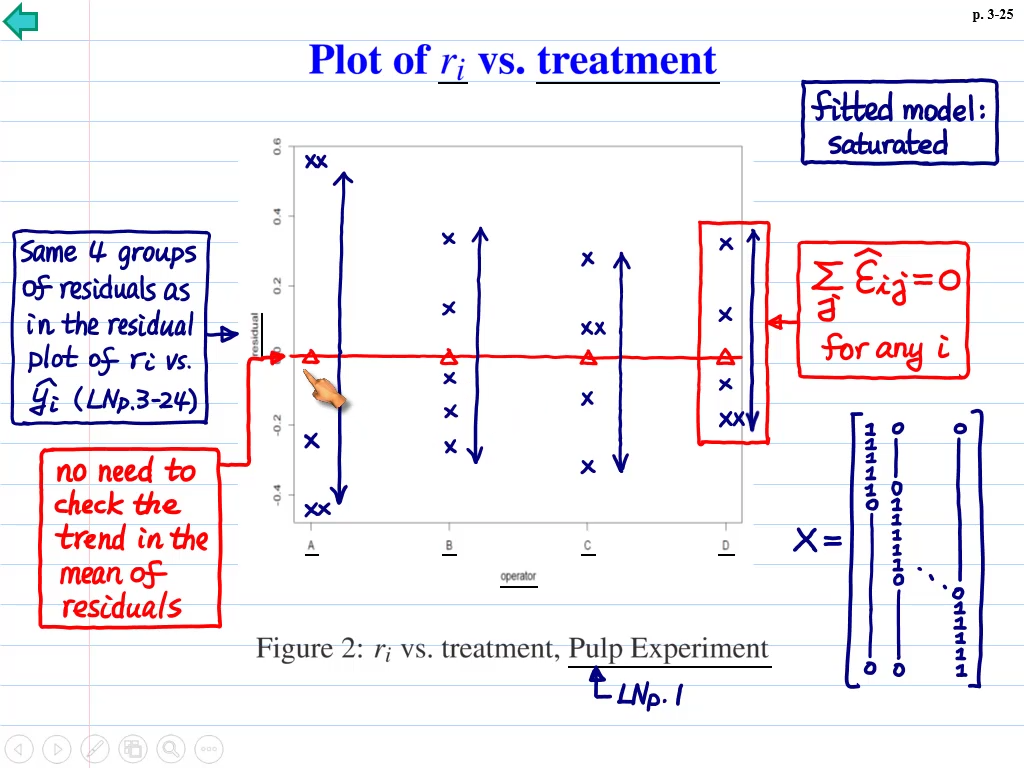 p. 3-25
Plot of rᵢ vs. treatment
fitted model:
saturated
Same 4 groups
of residuals as
in the residual
plot of rᵢ vs.
ŷᵢ (LNp.3-24)
no need to
check the
trend in the
mean of
residuals
0.6
0.4
0.2
0
-0.2
-0.4
residual
A B C D
operator
∑ⱼ ε̂ᵢⱼ = 0
for any i
X =
1 0 0
1
1
1
1 0
0 1
1
1
1
1
0
0
1
1
1
1
0 0 1
Figure 2: rᵢ vs. treatment, Pulp Experiment
LNp. 1